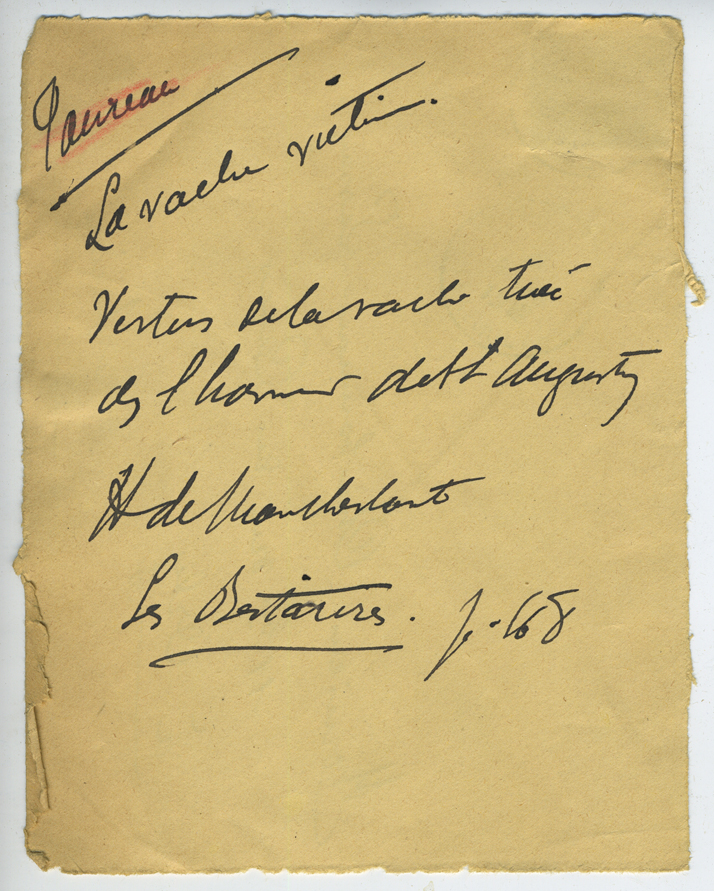 Taureau
La vache victime.
Vertus de la vache tuée
ds l'honneur de St Augustin
H de Montherlant
Les Bestiaires. p. 68